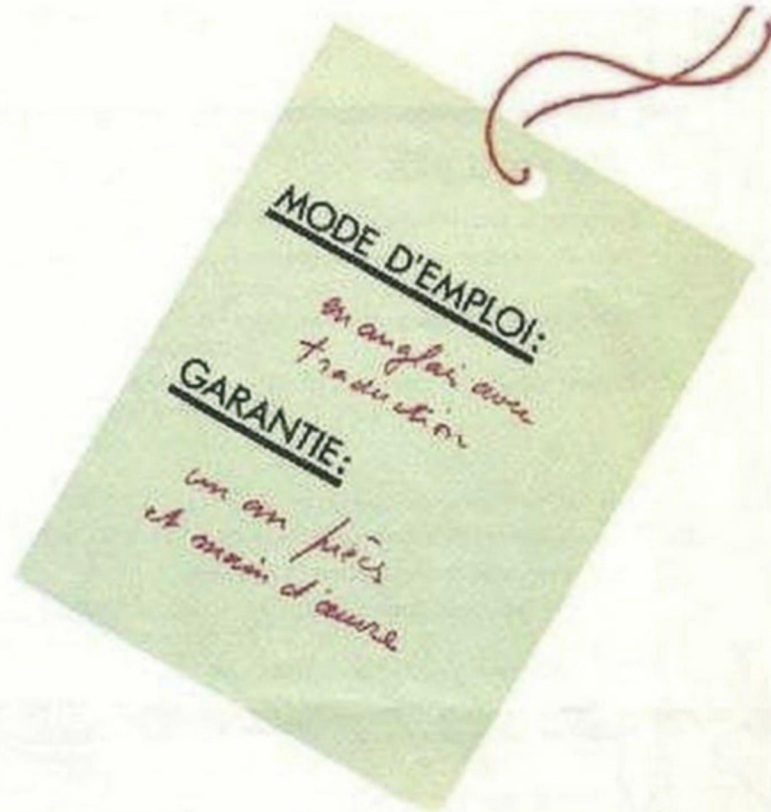 MODE D'EMPLOI:
en anglais avec
traduction
GARANTIE:
un an pièces
et main d'œuvre